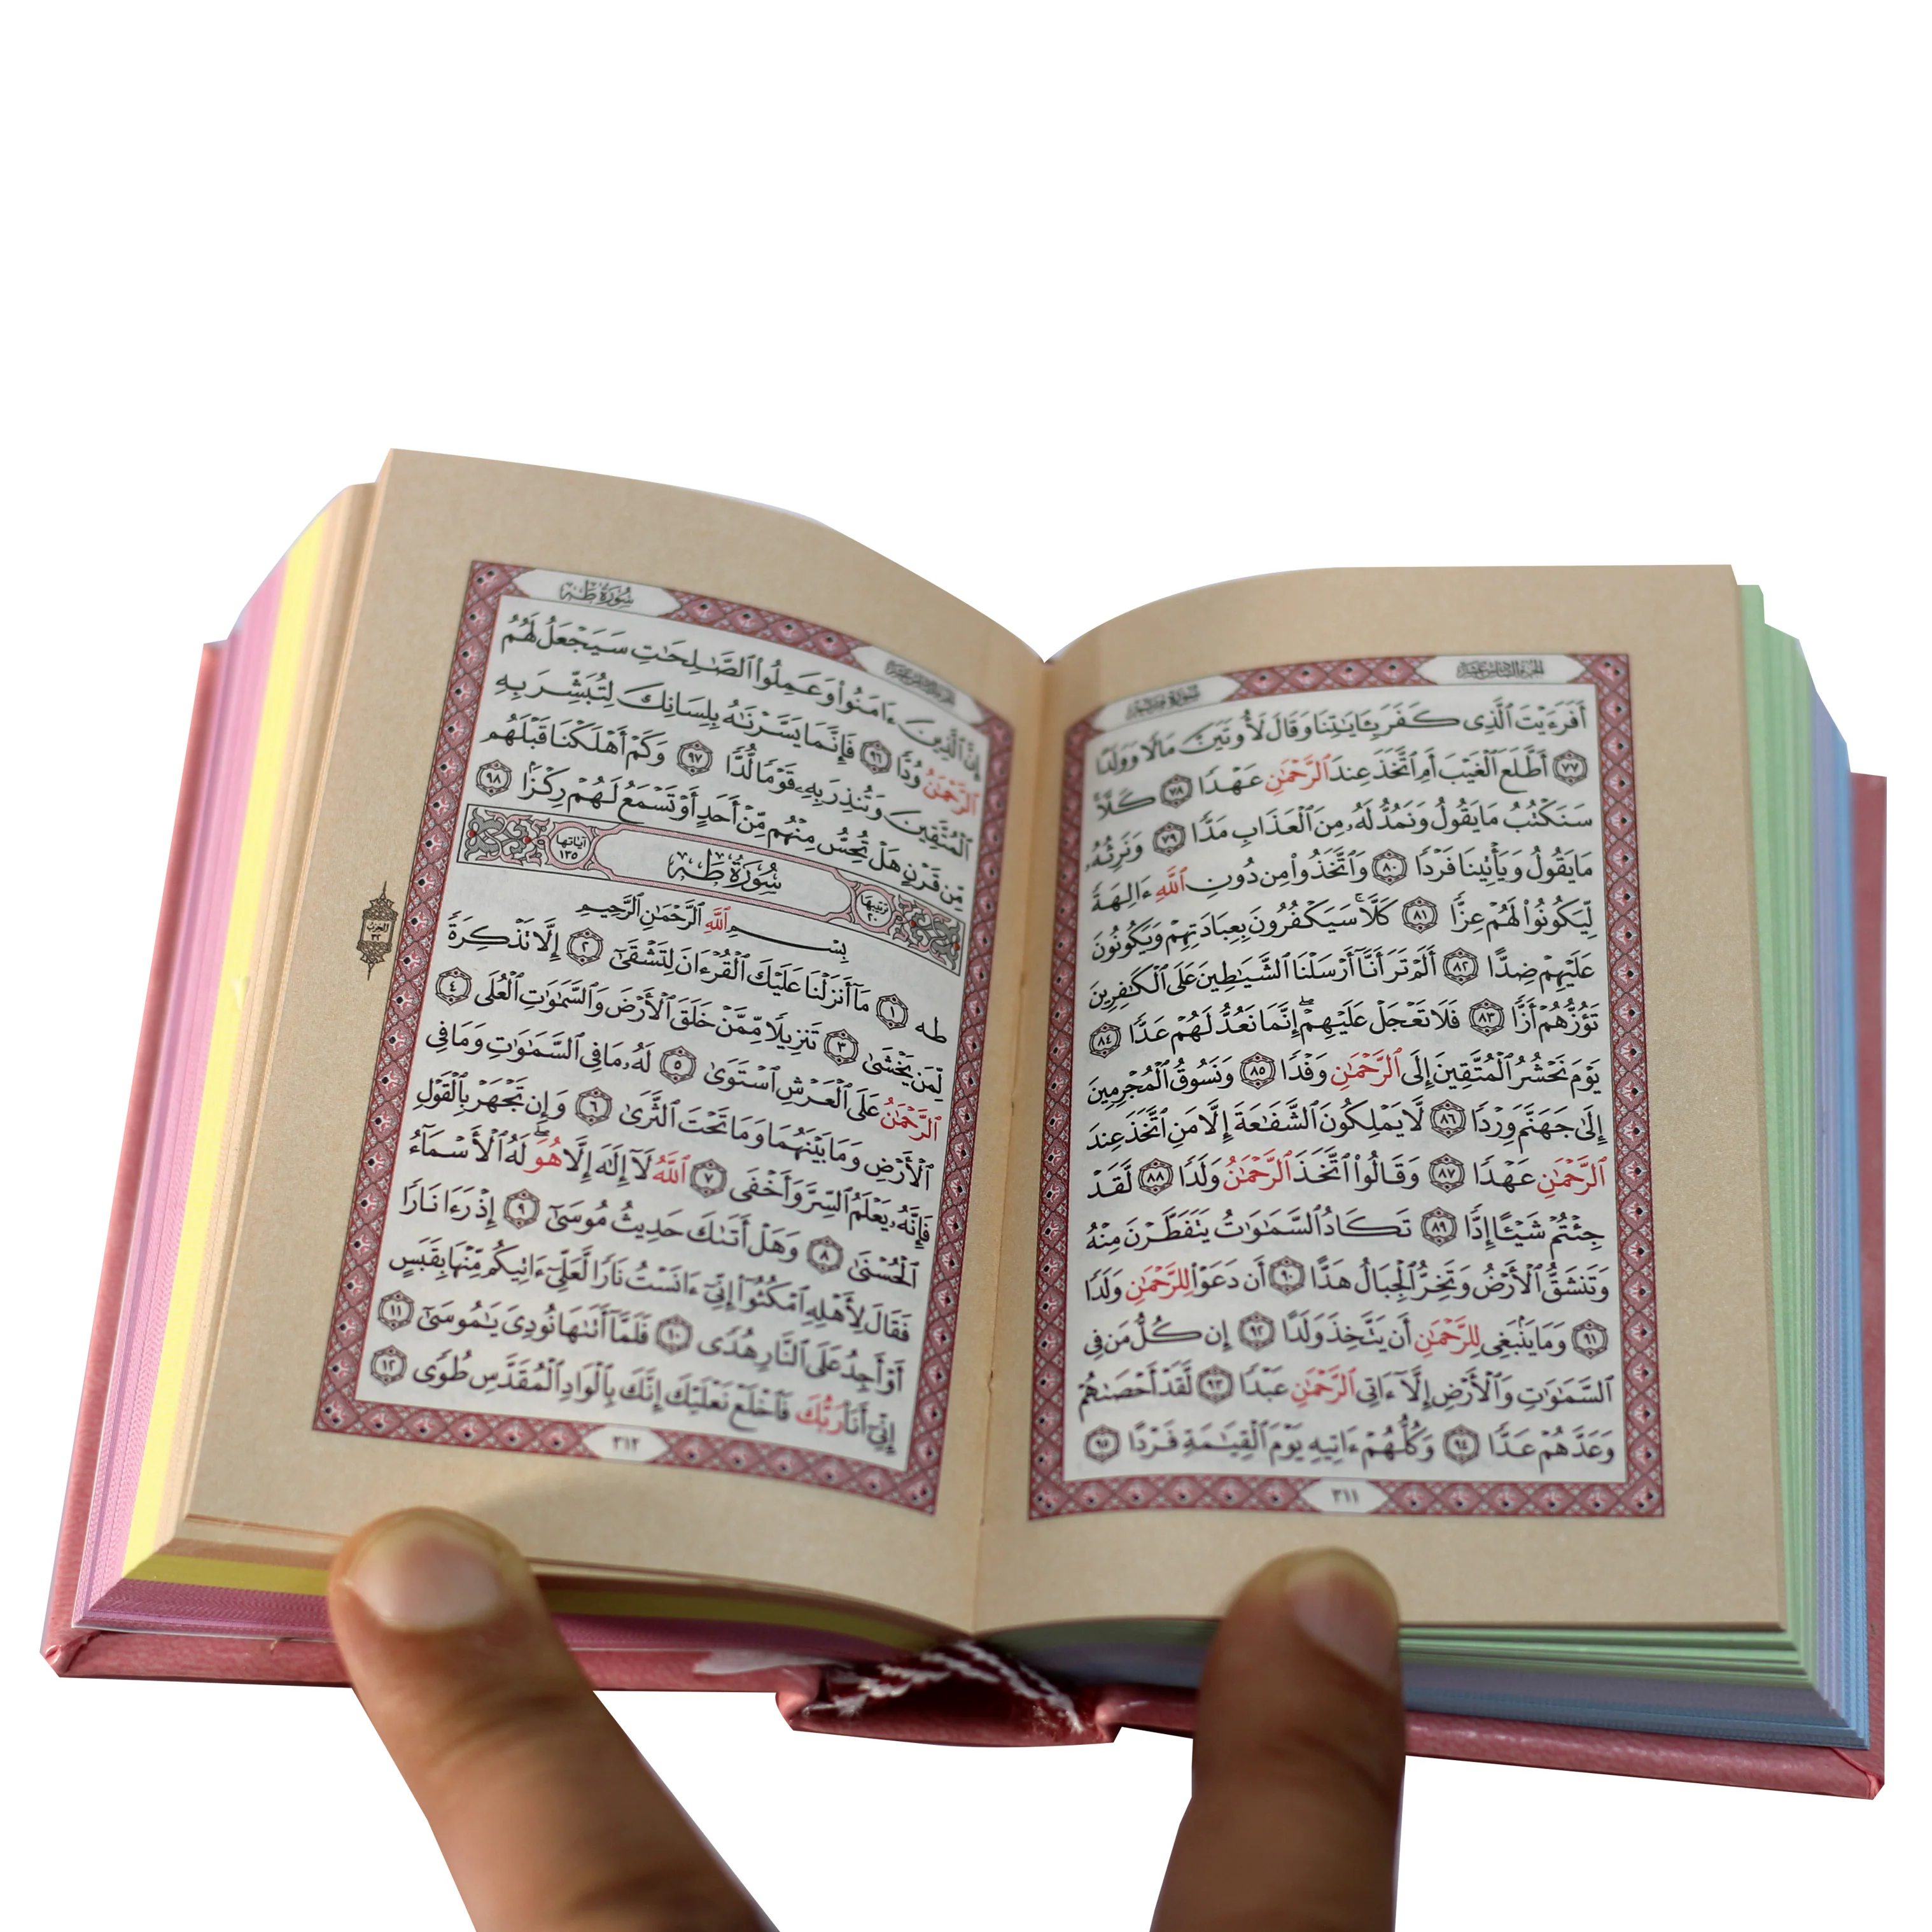 سورة مريم
الجزء السادس عشر
أَفَرَءَيْتَ ٱلَّذِى كَفَرَ بِـَٔايَـٰتِنَا وَقَالَ لَأُوتَيَنَّ مَالًا وَوَلَدًا
٧٧ أَطَّلَعَ ٱلْغَيْبَ أَمِ ٱتَّخَذَ عِندَ ٱلرَّحْمَـٰنِ عَهْدًا ٧٨ كَلَّا ۚ
سَنَكْتُبُ مَا يَقُولُ وَنَمُدُّ لَهُۥ مِنَ ٱلْعَذَابِ مَدًّا ٧٩ وَنَرِثُهُۥ
مَا يَقُولُ وَيَأْتِينَا فَرْدًا ٨٠ وَٱتَّخَذُوا۟ مِن دُونِ ٱللَّهِ ءَالِهَةً
لِّيَكُونُوا۟ لَهُمْ عِزًّا ٨١ كَلَّا ۚ سَيَكْفُرُونَ بِعِبَادَتِهِمْ وَيَكُونُونَ
عَلَيْهِمْ ضِدًّا ٨٢ أَلَمْ تَرَ أَنَّآ أَرْسَلْنَا ٱلشَّيَـٰطِينَ عَلَى ٱلْكَـٰفِرِينَ
تَؤُزُّهُمْ أَزًّا ٨٣ فَلَا تَعْجَلْ عَلَيْهِمْ ۖ إِنَّمَا نَعُدُّ لَهُمْ عَدًّا ٨٤
يَوْمَ نَحْشُرُ ٱلْمُتَّقِينَ إِلَى ٱلرَّحْمَـٰنِ وَفْدًا ٨٥ وَنَسُوقُ ٱلْمُجْرِمِينَ
إِلَىٰ جَهَنَّمَ وِرْدًا ٨٦ لَّا يَمْلِكُونَ ٱلشَّفَـٰعَةَ إِلَّا مَنِ ٱتَّخَذَ عِندَ
ٱلرَّحْمَـٰنِ عَهْدًا ٨٧ وَقَالُوا۟ ٱتَّخَذَ ٱلرَّحْمَـٰنُ وَلَدًا ٨٨ لَّقَدْ
جِئْتُمْ شَيْـًٔا إِدًّا ٨٩ تَكَادُ ٱلسَّمَـٰوَٰتُ يَتَفَطَّرْنَ مِنْهُ
وَتَنشَقُّ ٱلْأَرْضُ وَتَخِرُّ ٱلْجِبَالُ هَدًّا ٩٠ أَن دَعَوْا۟ لِلرَّحْمَـٰنِ وَلَدًا
٩١ وَمَا يَنۢبَغِى لِلرَّحْمَـٰنِ أَن يَتَّخِذَ وَلَدًا ٩٢ إِن كُلُّ مَن فِى
ٱلسَّمَـٰوَٰتِ وَٱلْأَرْضِ إِلَّآ ءَاتِى ٱلرَّحْمَـٰنِ عَبْدًا ٩٣ لَّقَدْ أَحْصَىٰهُمْ
وَعَدَّهُمْ عَدًّا ٩٤ وَكُلُّهُمْ ءَاتِيهِ يَوْمَ ٱلْقِيَـٰمَةِ فَرْدًا ٩٥
٣١١
الجزء السادس عشر
سورة طه
إِنَّ ٱلَّذِينَ ءَامَنُوا۟ وَعَمِلُوا۟ ٱلصَّـٰلِحَـٰتِ سَيَجْعَلُ لَهُمُ
ٱلرَّحْمَـٰنُ وُدًّا ٩٦ فَإِنَّمَا يَسَّرْنَـٰهُ بِلِسَانِكَ لِتُبَشِّرَ بِهِ
ٱلْمُتَّقِينَ وَتُنذِرَ بِهِۦ قَوْمًا لُّدًّا ٩٧ وَكَمْ أَهْلَكْنَا قَبْلَهُم
مِّن قَرْنٍ هَلْ تُحِسُّ مِنْهُم مِّنْ أَحَدٍ أَوْ تَسْمَعُ لَهُمْ رِكْزًۢا ٩٨
ترتيبها ٢٠ سورة طه آياتها ١٣٥
بِسْمِ ٱللَّهِ ٱلرَّحْمَـٰنِ ٱلرَّحِيمِ
طه ١ مَآ أَنزَلْنَا عَلَيْكَ ٱلْقُرْءَانَ لِتَشْقَىٰٓ ٢ إِلَّا تَذْكِرَةً
لِّمَن يَخْشَىٰ ٣ تَنزِيلًا مِّمَّنْ خَلَقَ ٱلْأَرْضَ وَٱلسَّمَـٰوَٰتِ ٱلْعُلَى ٤
ٱلرَّحْمَـٰنُ عَلَى ٱلْعَرْشِ ٱسْتَوَىٰ ٥ لَهُۥ مَا فِى ٱلسَّمَـٰوَٰتِ وَمَا فِى
ٱلْأَرْضِ وَمَا بَيْنَهُمَا وَمَا تَحْتَ ٱلثَّرَىٰ ٦ وَإِن تَجْهَرْ بِٱلْقَوْلِ
فَإِنَّهُۥ يَعْلَمُ ٱلسِّرَّ وَأَخْفَى ٧ ٱللَّهُ لَآ إِلَـٰهَ إِلَّا هُوَ ۖ لَهُ ٱلْأَسْمَآءُ
ٱلْحُسْنَىٰ ٨ وَهَلْ أَتَىٰكَ حَدِيثُ مُوسَىٰٓ ٩ إِذْ رَءَا نَارًا
فَقَالَ لِأَهْلِهِ ٱمْكُثُوٓا۟ إِنِّىٓ ءَانَسْتُ نَارًا لَّعَلِّىٓ ءَاتِيكُم مِّنْهَا بِقَبَسٍ
أَوْ أَجِدُ عَلَى ٱلنَّارِ هُدًى ١٠ فَلَمَّآ أَتَىٰهَا نُودِىَ يَـٰمُوسَىٰٓ ١١
إِنِّىٓ أَنَا۠ رَبُّكَ فَٱخْلَعْ نَعْلَيْكَ إِنَّكَ بِٱلْوَادِ ٱلْمُقَدَّسِ طُوًى ١٢
٣١٢
الحزب
٣٢